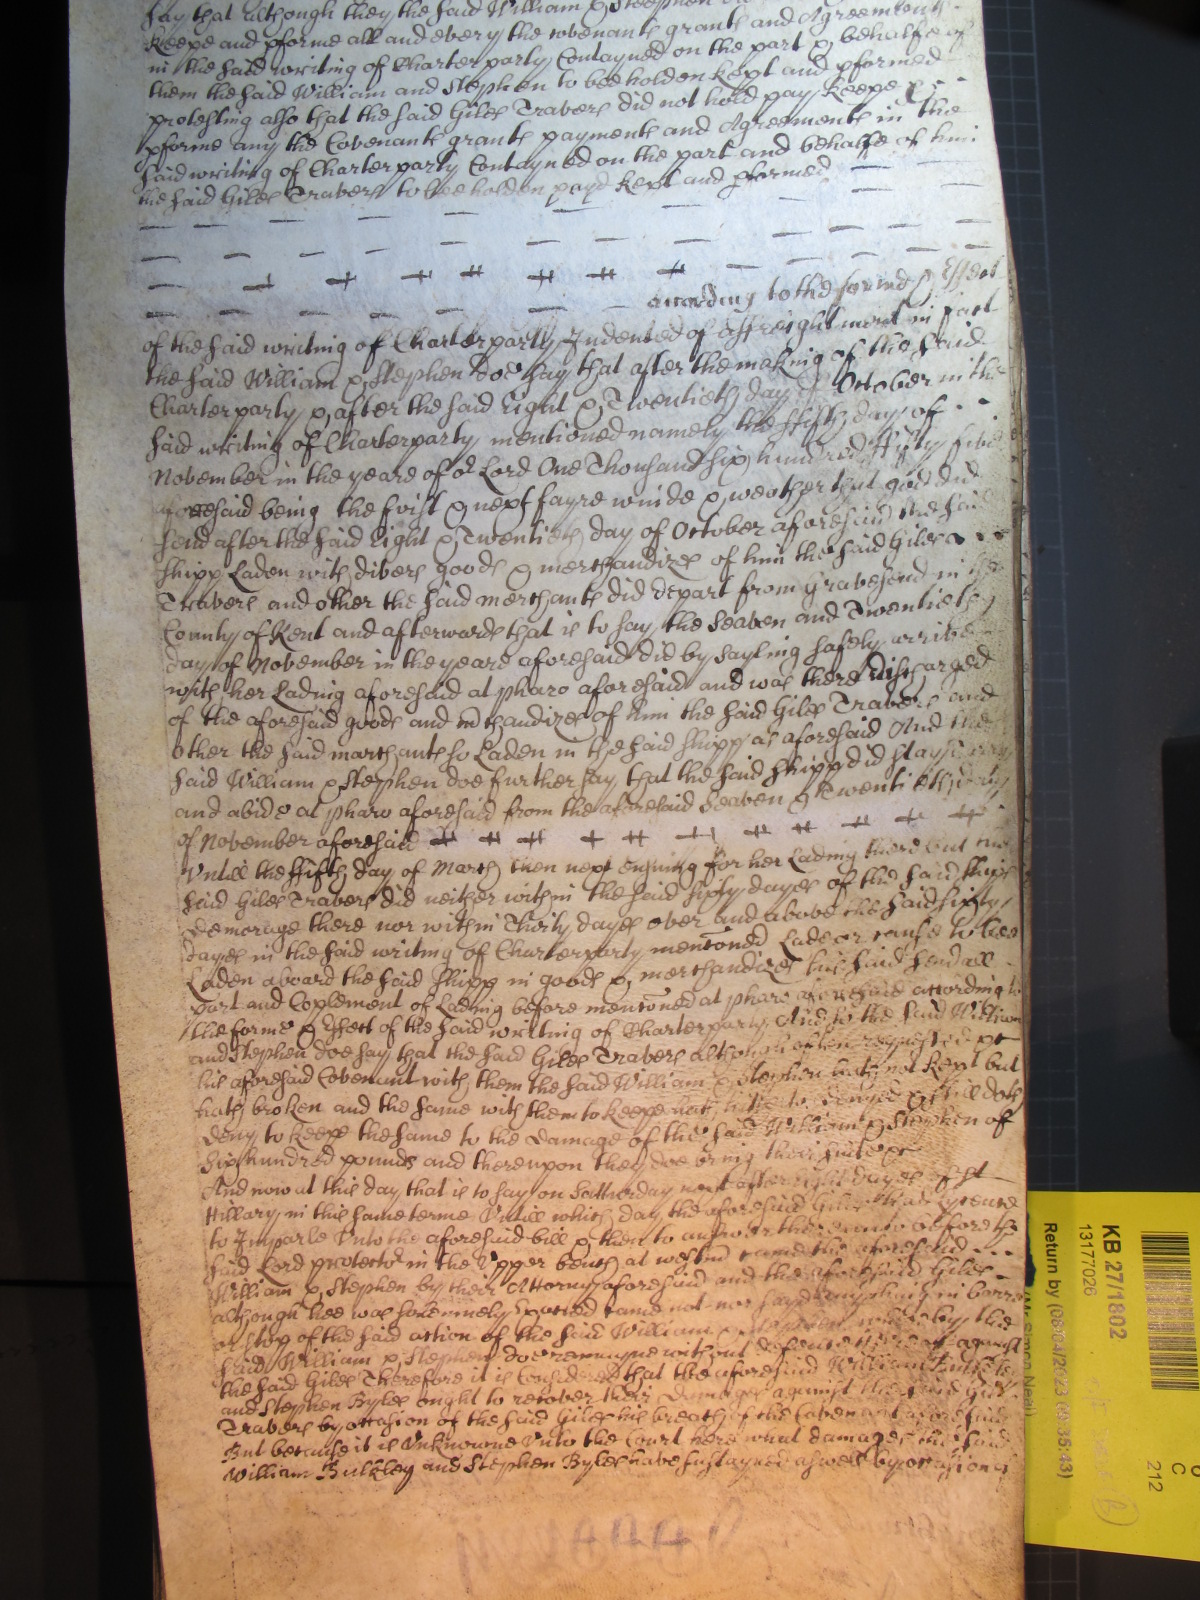 say that although they the said William & Stephen
keepe and pforme all and every the Covenants grants and Agreements
in the said writing of Charterparty Contayned on the part & behalfe of
them the said William and Stephen to bee holden kept and pformed
protesting also that the said Giles Travers did not hold pay keepe &
pforme any the Covenants grants payments and Agreements in the
said writing of Charterparty Contayned on the part and behalfe of him
the said Giles Travers to bee holden payd kept and pformed
according to the forme & Effect
of the said writing of Charterparty Indented of affreightment in fact
the said William & Stephen doe say that after the making of the said
Charterparty & after the said Eight & Twentieth day of October in the
said writing of Charterparty mentioned namely the ffifth day of
November in the yeare of or Lord One Thousand six hundred ffifty five
aforesaid being the first & next fayre winde & weather that god did
send after the said Eight & Twentieth day of October aforesaid the said
shipp Laden with divers goods & merchandizes of him the said Giles
Travers and other the said merchants did depart from Gravesend in the
County of Kent and afterwards that is to say the Seaven and Twentieth
day of November in the yeare aforesaid did by Sayling safely arrive
with her Lading aforesaid at pharo aforesaid and was there discharged
of the aforesaid goods and mchandizes of him the said Giles Travers and
other the said marchants so Laden in the said shipp as aforesaid And the
said William & Stephen doe further say that the said shipp did stay
and abide at pharo aforesaid from the aforesaid Seaven & Twentieth day
of November aforesaid
Untill the ffifth day of March then next ensuing for her Lading there but the
said Giles Travers did neither within the said sixty dayes of the said shipps
demorage there nor within Thirty dayes over and above the said sixty
dayes in the said writing of Charterparty mentoned Lade or cause to bee
Laden aboard the said shipp in goods & merchandizes his said send all
part and Coplement of Lading before mentoned at pharo aforesaid according to
the forme & Effect of the said writing of Charterparty And so the said William
and Stephen doe say that the said Giles Travers although often requested &c
his aforesaid Covenant with them the said William & Stephen hath not kept but
hath broken and the same with them to keepe hath hitherto denyed & still doth
deny to keepe the same to the damage of the said William & Stephen of
six hundred pounds and thereupon they doe bring their suite &c
And now at this day that is to say on Satturday next after eight dayes of St
Hillary in this same terme Untill which day the aforesaid Giles had lycence
to Imparle Unto the aforesaid bill & then to answer thereunto before the
said Lord protector in the Upper bench at westm came the aforesaid
William & Stephen by their Attorny aforesaid and the aforesaid Giles
although hee was solemnely required came not nor sayd any thing in barre
or stop of the said action of the said William & Stephen whereby the
said William & Stephen doe remayne without defence thereof against
the said Giles Therefore it is Considered that the aforesaid William Bulkley
and Stephen Byles ought to recover their damages against the said Giles
Travers by occasion of the said Giles his breach of the Covenant aforesaid
But because it is Unknowne Unto the Court here what damages the said
William Bulkley and Stephen Byles have sustayned aswell by occasion of
KB 27/1802
13177026
Return by (08/04/2023 09:35:43)
C
212